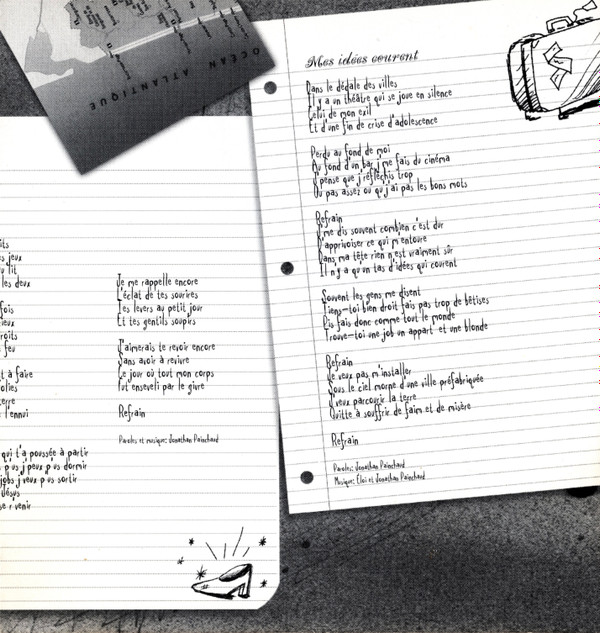 OCÉAN ATLANTIQUE
its
s jeux
u lit
les deux
fois
rieux
roits
feu
t à faire
olies
terre
l'ennui
qui t'a poussée à partir
p'us j'peux p'us dormir
jobs j'veux p'us sortir
Jésus
se r'venir
Je me rappelle encore
L'éclat de tes sourires
Tes levers au petit jour
Et tes gentils soupirs
J'aimerais te revoir encore
Sans avoir à revivre
Ce jour où tout mon corps
Fut enseveli par le givre
Refrain
Paroles et musique: Jonathan Painchaud
Mes idées courent
Dans le dédale des villes
Il y a un théâtre qui se joue en silence
Celui de mon exil
Et d'une fin de crise d'adolescence
Perdu au fond de moi
Au fond d'un bar j'me fais du cinéma
J'pense que j'réfléchis trop
Ou pas assez ou qu'j'ai pas les bons mots
Refrain
J'me dis souvent combien c'est dur
D'apprivoiser ce qui m'entoure
Dans ma tête rien n'est vraiment sûr
Il n'y a qu'un tas d'idées qui courent
Souvent les gens me disent
Tiens-toi bien droit fais pas trop de bêtises
Pis fais donc comme tout le monde
Trouve-toi une job un appart' et une blonde
Refrain
Je veux pas m'installer
Sous le ciel morne d'une ville préfabriquée
J'veux parcourir la terre
Quitte à souffrir de faim et de misère
Refrain
Paroles: Jonathan Painchaud
Musique: Éloi et Jonathan Painchaud